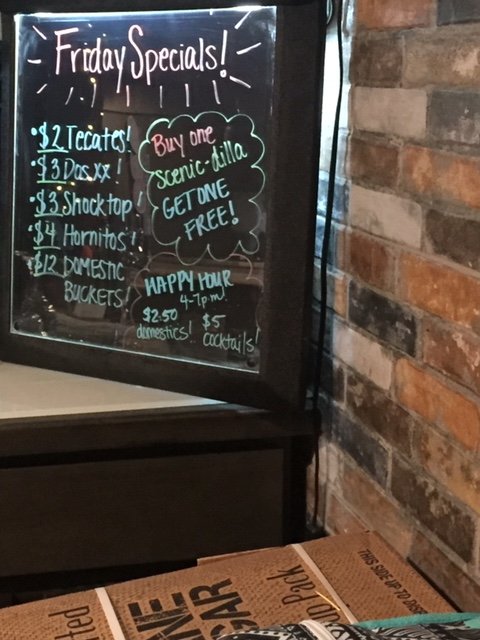 Friday Specials!
• $2 Tecates!
• $3 Dos xx!
• $3 Shocktop!
• $4 Hornitos!
• $12 DOMESTIC
BUCKETS!
Buy one
scenic-dilla
GET ONE
FREE!
HAPPY HOUR
4-7p.m.
$2.50
domestics!
$5
cocktails!
THIS SIDE UP TO
INE
GAR
Pack